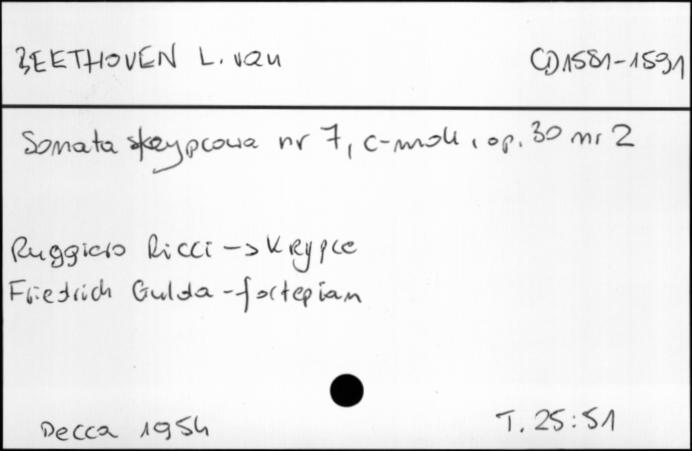 BEETHOVEN L. van CD1581-1591
Sonata skrzypcowa nr 7, c-moll, op. 30 nr 2
Ruggiero Ricci -> skrzypce
Friedrich Gulda - fortepian
Decca 1954 T. 25:51